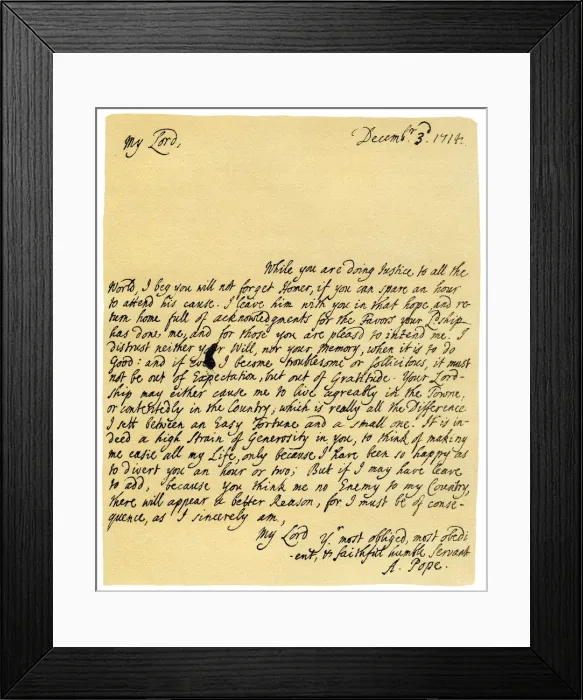 My Lord,
Decemb.r 3.d 1714.
While you are doing Justice to all the
World, I beg you will not forget Homer, if you can spare an hour
to attend his cause. I leave him with you in that hope, and re-
turn home full of acknowledgments for the Favors your Lship
has done me, and for those you are pleasd to intend me. I
distrust neither your Will, nor your Memory, when it is to do
Good: and if ever I become troublesome or sollicitous, it must
not be out of Expectation, but out of Gratitude. Your Lord-
ship may either cause me to live agreably in the Towne,
or contentedly in the Country; which is really all the Difference
I sett between an Easy Fortune and a small one. It is in-
deed a high Strain of Generosity in you, to think of making
me easie all my Life, only because I have been so happy as
to divert you an hour or two; But if I may have leave
to add, because you think me no Enemy to my Country,
there will appear a better Reason, for I must be of conse-
quence, as I sincerely am,
My Lord Y.r most obliged, most obedi
-ent, & faithful humble Servant
A. Pope.